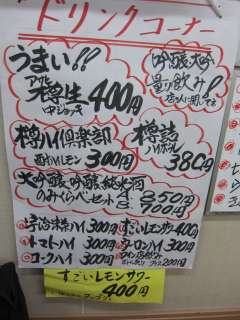 ドリンクコーナー
うまい!!
アサヒ
樽生 400円
中ジョッキ
吟醸大吟
量り飲み!!
樽ハイ倶楽部
酎ハイレモン 300円
樽詰
ハイボール
380円
大吟醸・吟醸・純米酒
のみくらべセット
2 850円
3 700円
宇治茶ハイ 300円
トマトハイ 300円
コークハイ 300円
すごいレモンサワー 400円
ウーロンハイ 300円
すごいレモンサワー
400円